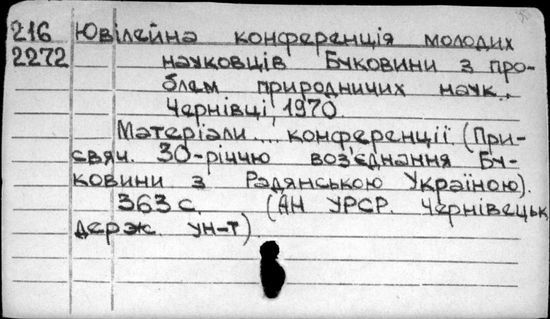 216 Ювілейна конференція молодих
2272 науковців Буковини з про-
блем природничих наук.
Чернівці, 1970.
Матеріали... конференції. (При-
свяч. 30-річчю воз'єднання Бу-
ковини з Радянською Україною).
363 с. (АН УРСР. Чернівецьк.
держ. ун-т).